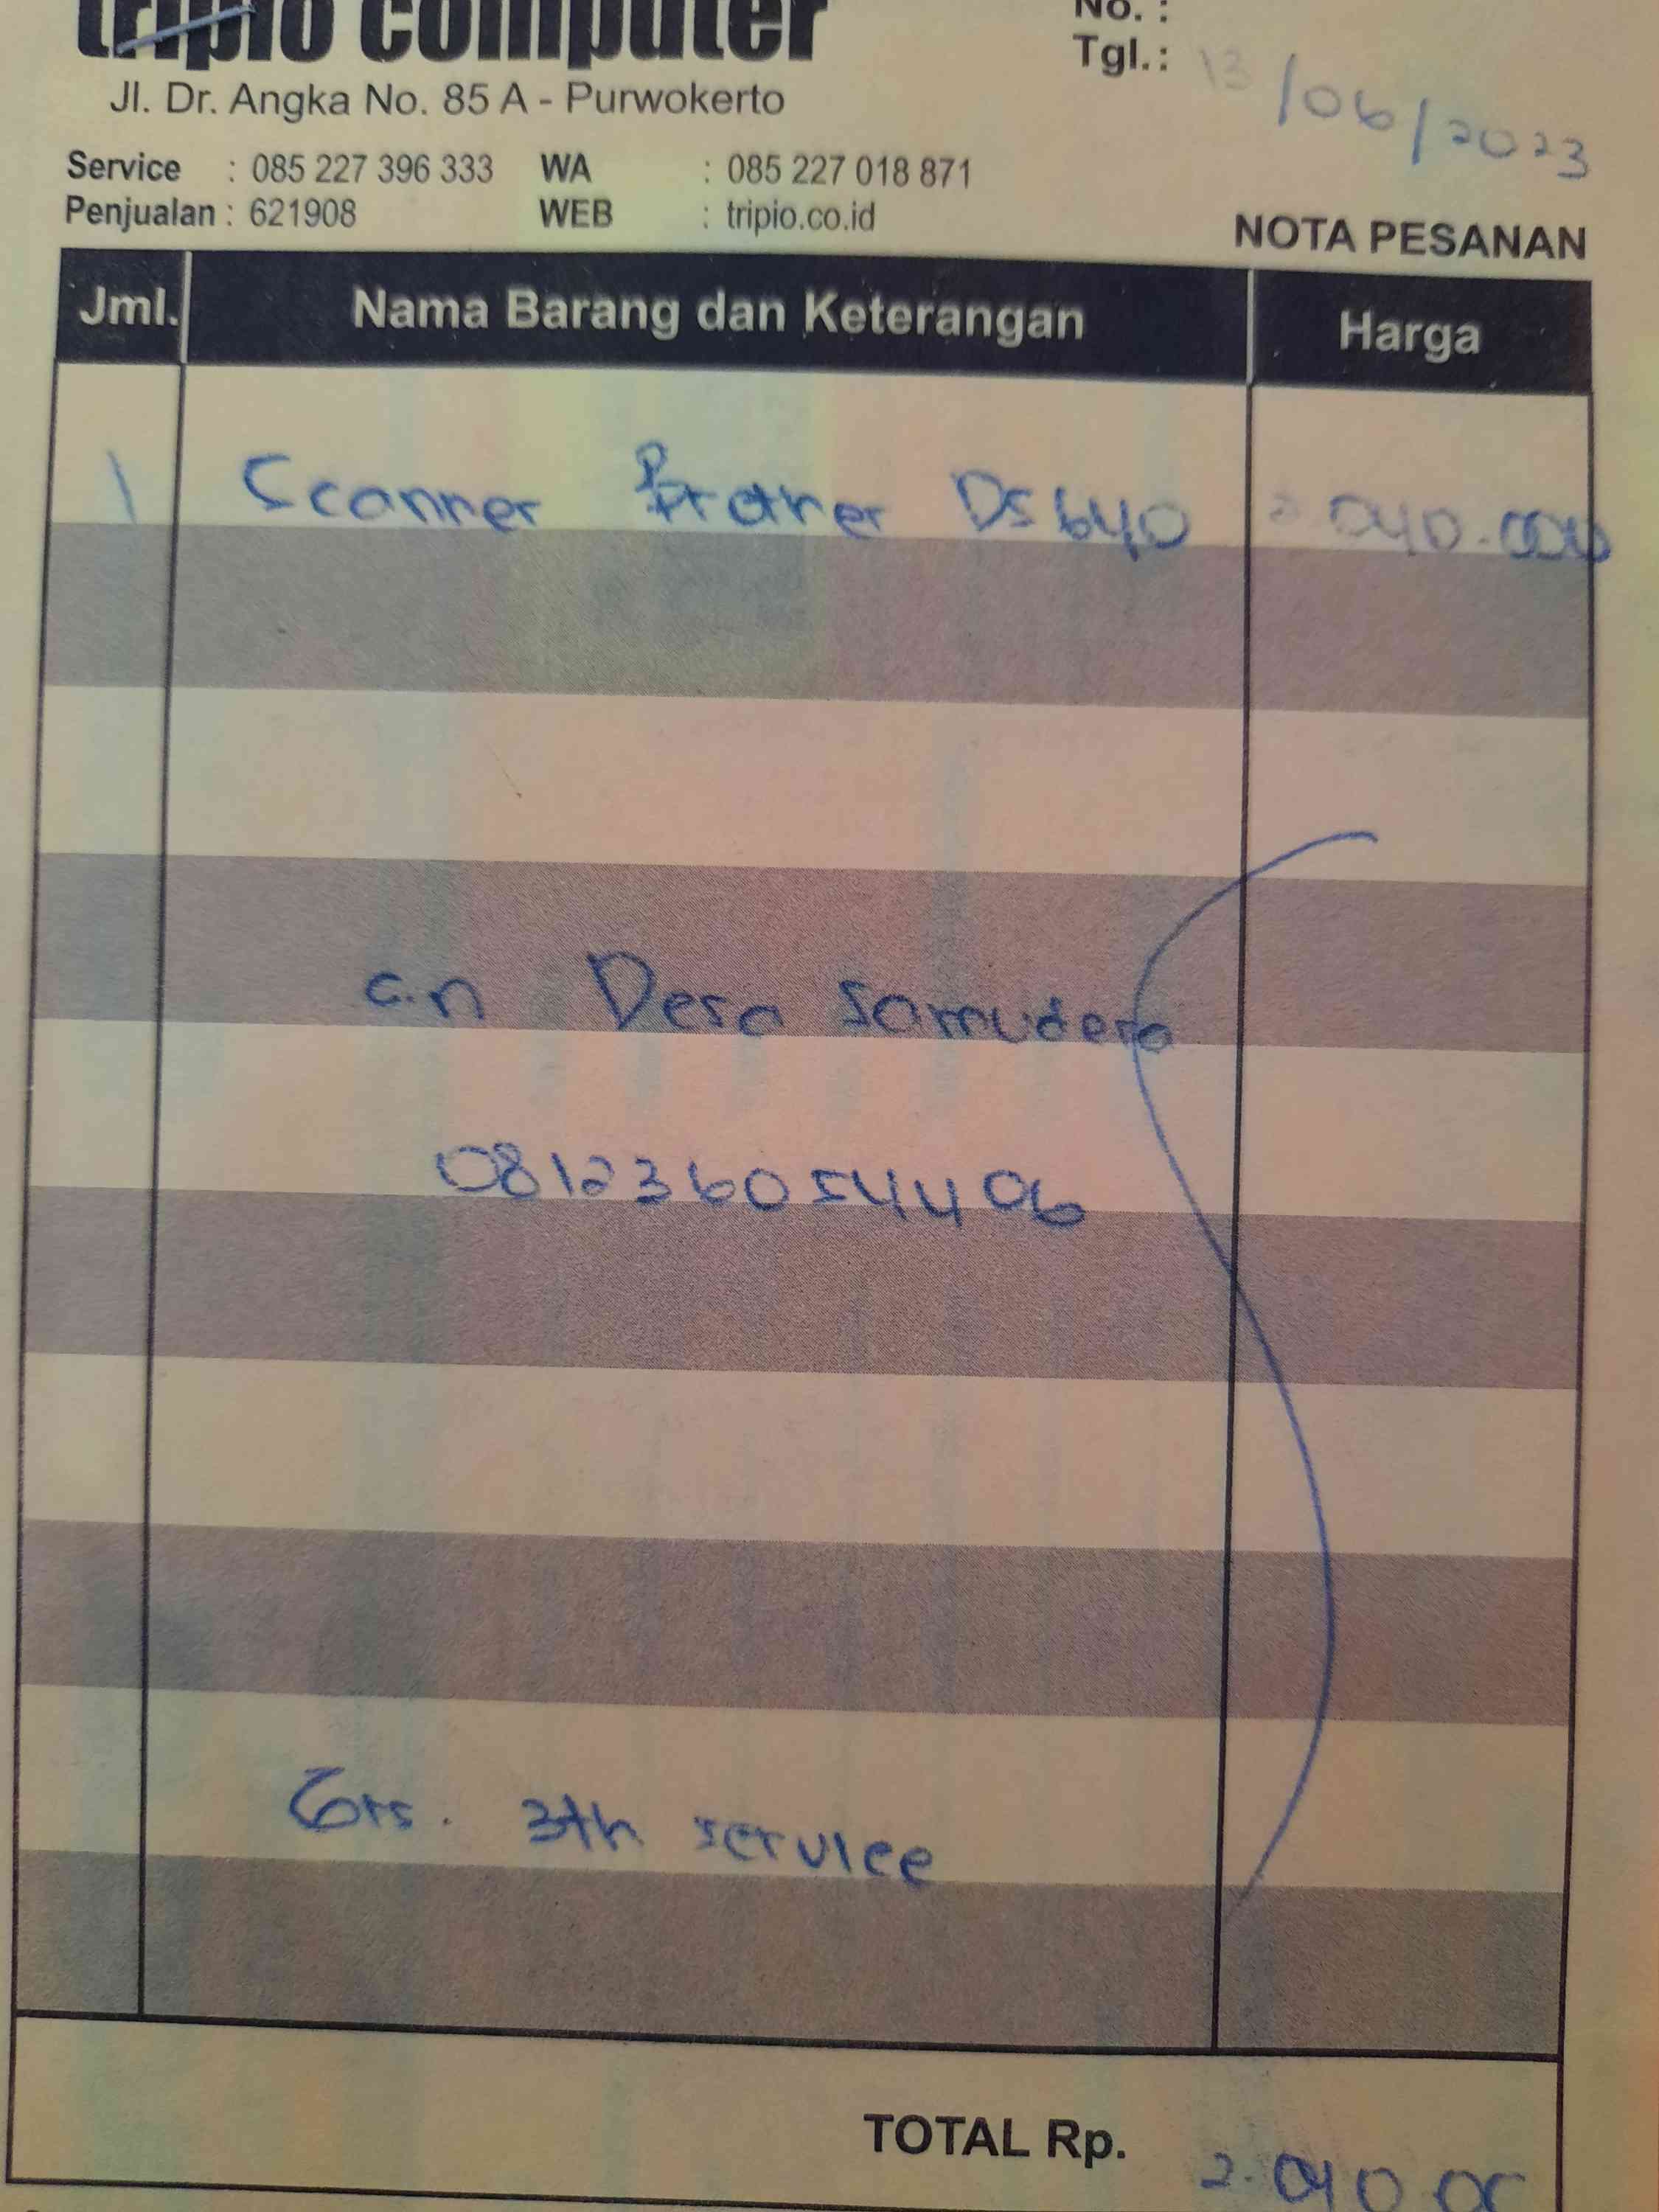 tripio computer
No. :
Jl. Dr. Angka No. 85 A - Purwokerto
Tgl.: 13/06/2023
Service : 085 227 396 333 WA : 085 227 018 871
Penjualan : 621908 WEB : tripio.co.id
NOTA PESANAN
Jml. Nama Barang dan Keterangan Harga
1 Scanner Broter DS640 2.040.000
a.n Desa Samudera
081236054406
Grs. 3th service
TOTAL Rp. 2.040.00